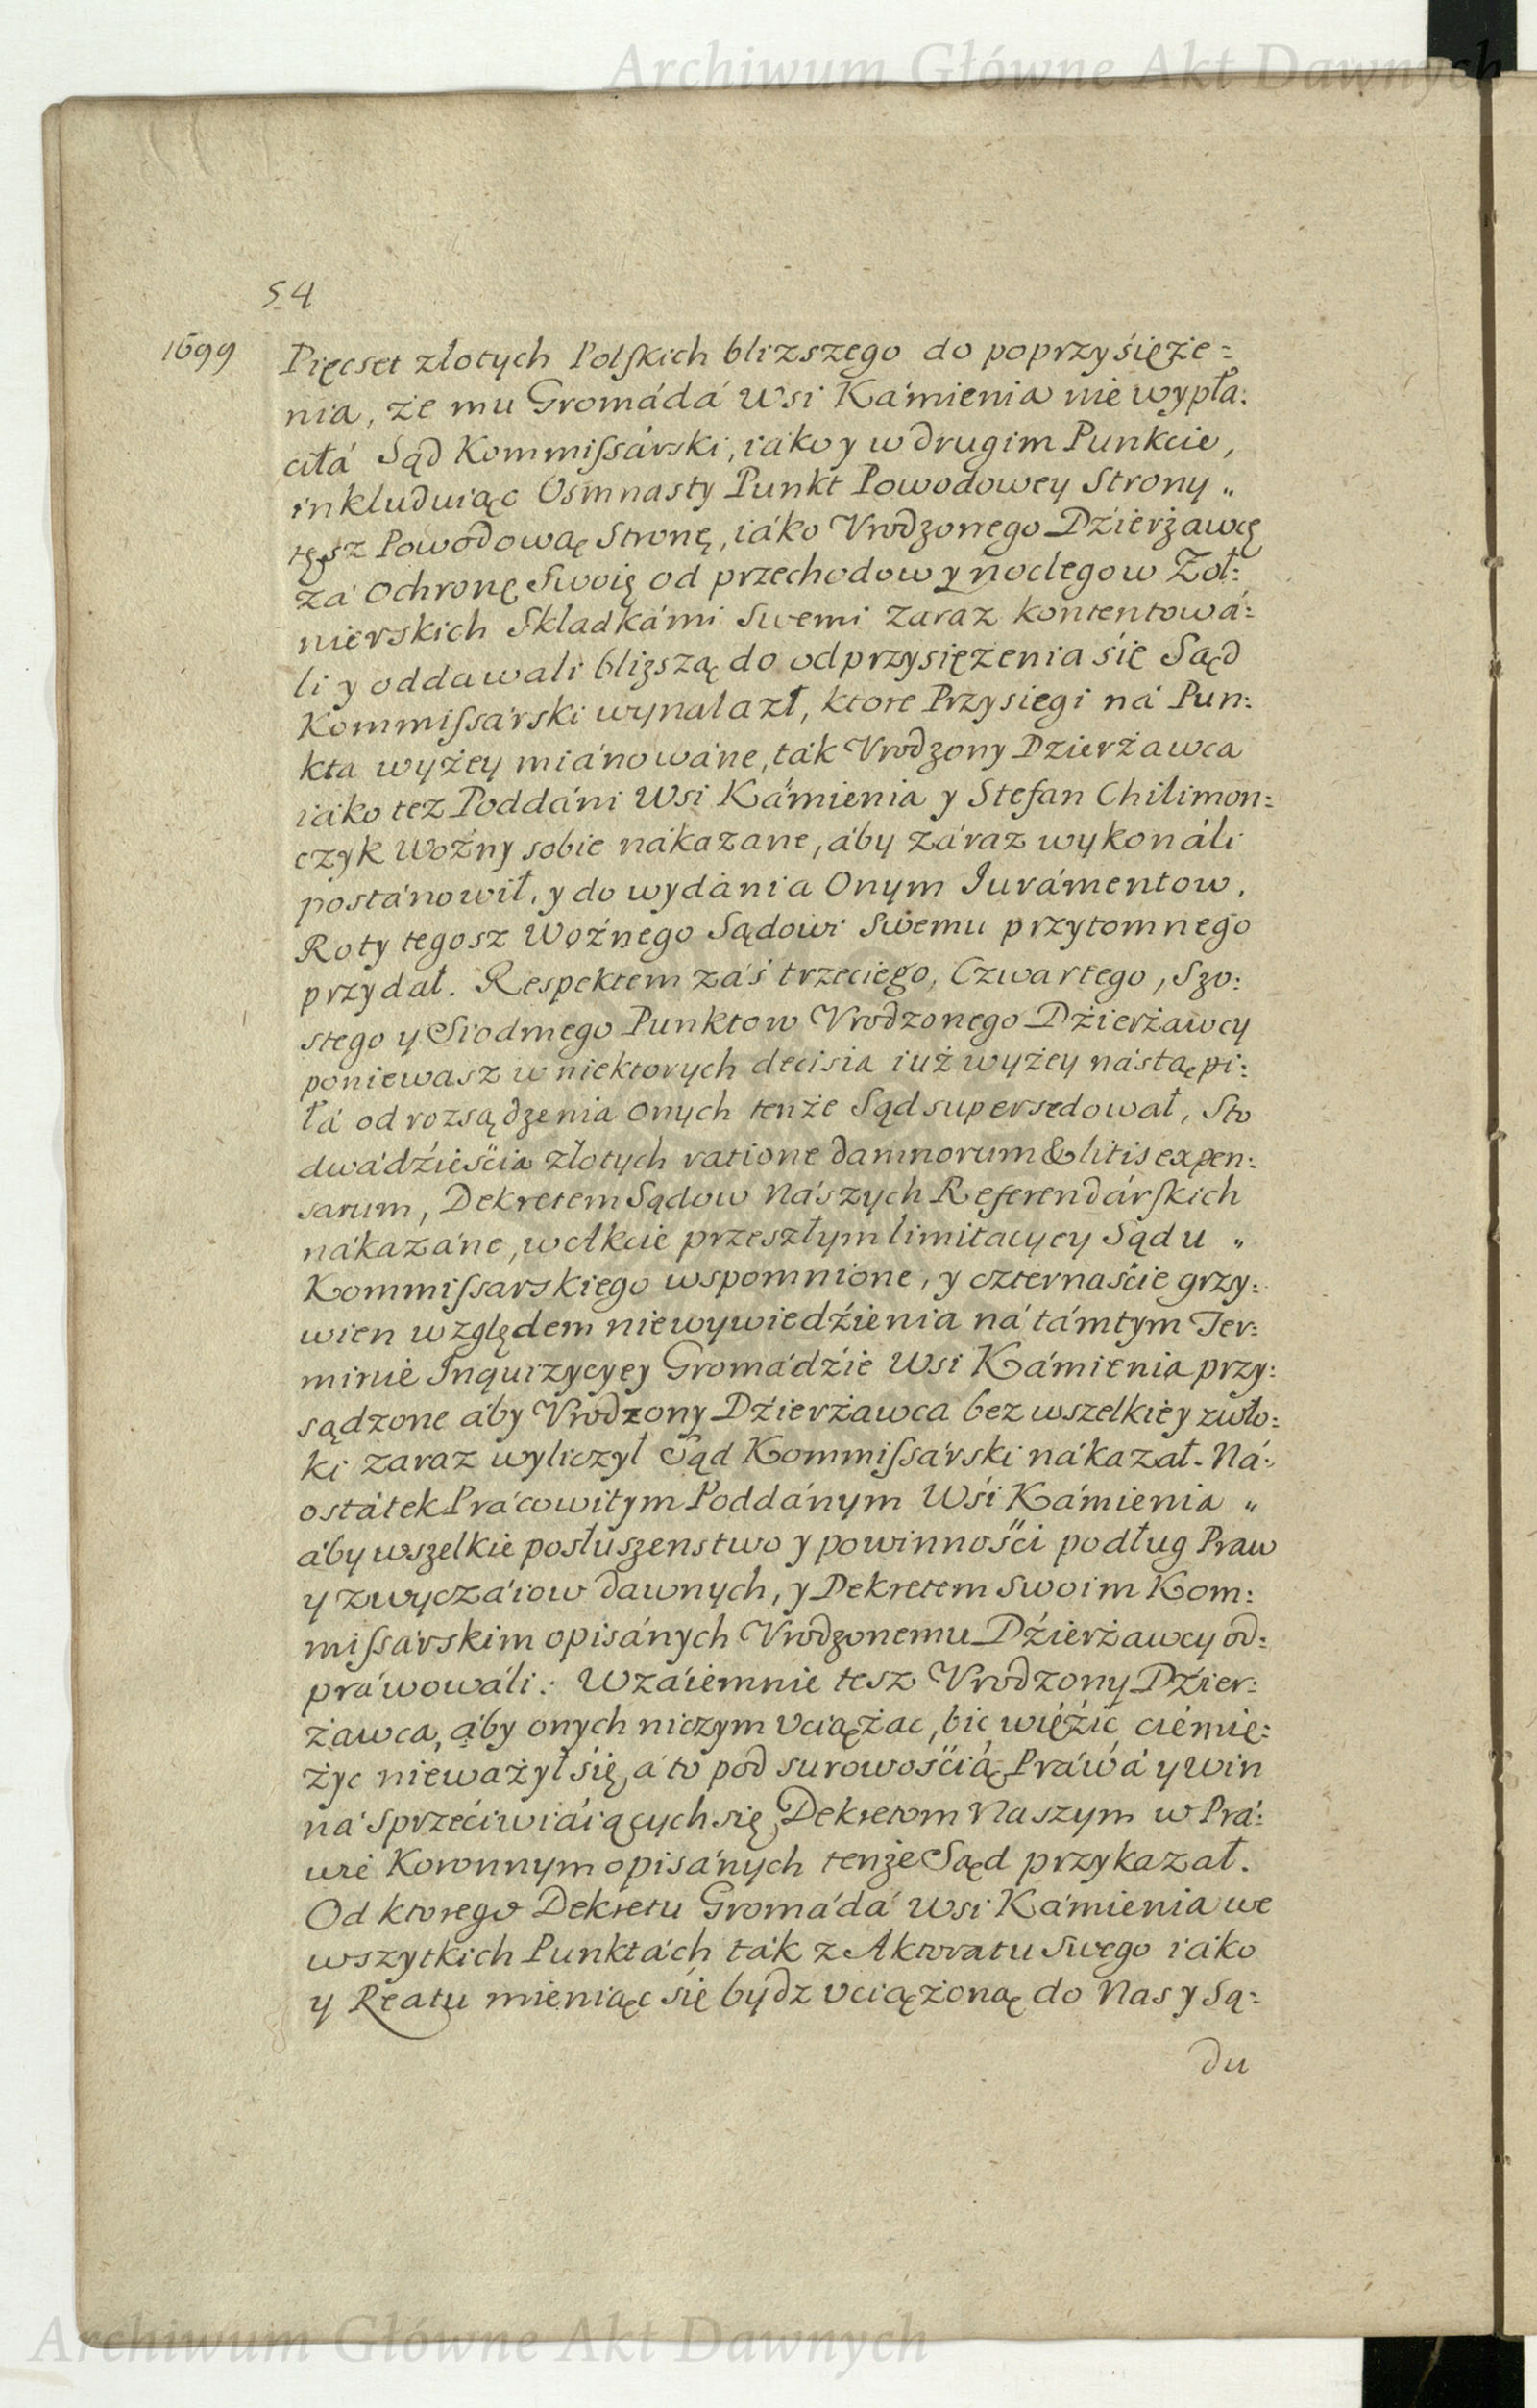 Archiwum Główne Akt Dawnych
54
1699
Pięcset złotych Polskich blizszego do poprzyśięże=
nia, że mu Gromádá Wsi Kámienia nie wypła:
ciłá Sąd Kommissárski, iako y w drugim Punkcie,
inkluduiąc Osmnasty Punkt Powodowey Strony „
tęsz Powodową Stronę, iáko Vrodzonego Dźierżawcę
zá Ochronę Swoię od przechodow y noclegow Żoł:
nierskich Skladkámi Swemi zaraz kontentowá:
li y oddawali bliższą do odprzysiężenia się Sąd
Kommissárski wynalazł, ktore Przysięgi ná Pun:
kta wyżey miánowáne, ták Vrodzony Dzierżawca
iáko tez Poddáni Wsi Kámienia y Stefan Chilimon:
czyk Woźny sobie nákazane, áby záraz wykonáli
postánowił, y do wydánia Onym Iurámentow,
Roty tegosz Woźnego Sądowi Swemu przytomnego
przydał. Respektem záś trzeciego, Czwartego, Szo:
stego y Siodmego Punktow Vrodzonego Dźierżawcy
poniewasz w niektorych decisia iuż wyżey nástąpi:
łá od rozsądzenia Onych tenże Sąd supersedował, Sto
dwádźieścia złotych ratione damnorum & litis expen:
sarum, Dekretem Sądow Nászych Referendárskich
nákazáne, w Akcie przeszłym limitacyey Sądu „
Kommissarskiego wspomnione, y czternaście grzy:
wien względem niewywiedźienia ná támtym Ter:
minie Inquizycyey Gromádźie Wsi Kámienia przy:
sądzone áby Vrodzony Dźierżawca bez wszelkiey zwło:
ki zaraz wyliczył Sąd Kommissárski nákazał. Ná:
ostátek Prácowitym Poddánym Wśi Kámienia „
áby wszelkie posłuszenstwo y powinnośći podług Praw
y zwyczáiow dawnych, y Dekretem Swoim Kom:
missárskim opisánych Vrodzonemu Dźierżawcy od:
práwowáli: Wzáiemnie tesz Vrodzony Dźier:
żawca, áby onych niczym vciążac, bic, więźić ciemię:
życ nieważył się, á to pod surowośćią Práwá y win
ná sprzećiwiáiących się Dekretom Naszym w Prá:
wie Koronnym opisánych tenże Sąd przykazał.
Od ktorego Dekretu Gromádá Wsi Kámienia we
wszytkich Punktách ták z Aktoratu Swego iáko
y Reatu mieniąc się bydz vciążoną do Nas y Są:
du
Archiwum Główne Akt Dawnych